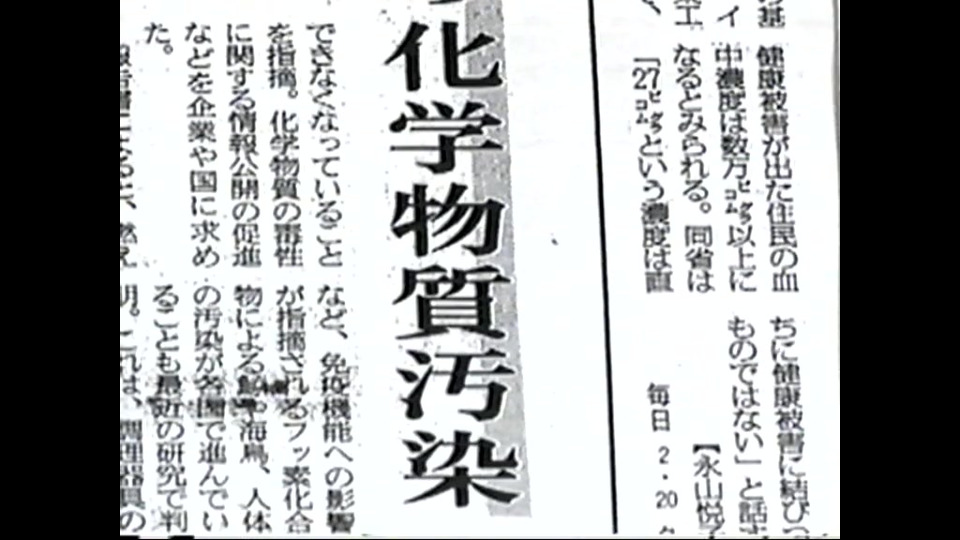 の基
イ
工
健康被害が出た住民の血
中濃度は数万ピコグラム以上に
なるとみられる。同省は
「27ピコグラムという濃度は直
ちに健康被害に結びつ
ものではない」と話す
【永山悦子
毎日 2・20 夕
化学物質汚染
できなくなっていること
を指摘。化学物質の毒性
に関する情報公開の促進
などを企業や国に求め
た。
報告書によると、燃え
など、免疫機能への影響
が指摘されるフッ素化合
物による魚や海鳥、人体
の汚染が各国で進んでい
ることも最近の研究で判
明。これは、調理器具の